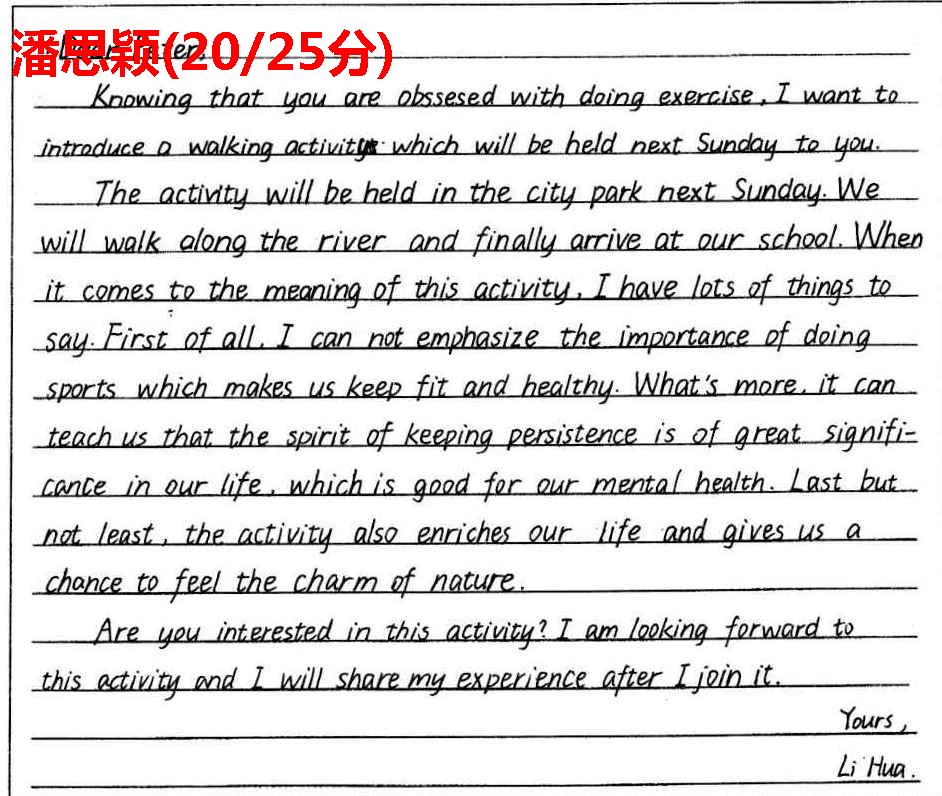 潘思颖(20/25分)
Dear Peter,
Knowing that you are obssesed with doing exercise, I want to
introduce a walking activity which will be held next Sunday to you.
The activity will be held in the city park next Sunday. We
will walk along the river and finally arrive at our school. When
it comes to the meaning of this activity, I have lots of things to
say. First of all, I can not emphasize the importance of doing
sports which makes us keep fit and healthy. What's more, it can
teach us that the spirit of keeping persistence is of great signifi-
cance in our life, which is good for our mental health. Last but
not least, the activity also enriches our life and gives us a
chance to feel the charm of nature.
Are you interested in this activity? I am looking forward to
this activity and I will share my experience after I join it.
Yours,
Li Hua.